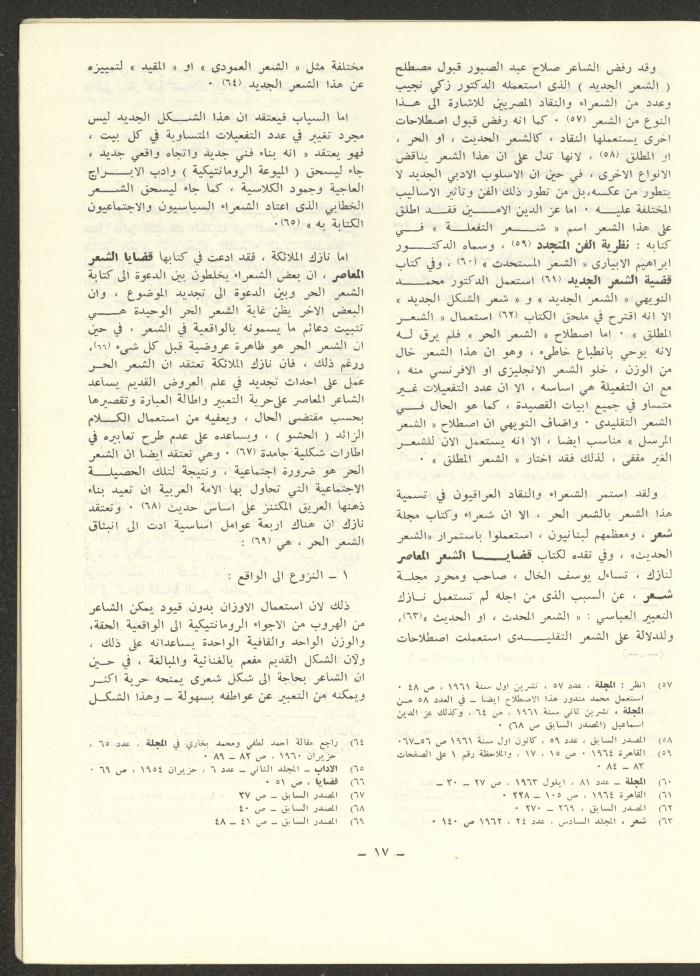 وقد رفض الشاعر صلاح عبد الصبور قبول مصطلح
( الشعر الجديد ) الذى استعمله الدكتور زكي نجيب
وعدد من الشعراء والنقاد المصريين للاشارة الى هــذا
النوع من الشعر (٥٧) ٠ كما انه رفض قبول اصطلاحات
اخرى يستعملها النقاد ، كالشعر الحديث ، او الحر ،
او المطلق (٥٨) ، لانها تدل على ان هذا الشعر يناقض
الانواع الاخرى ، في حين ان الاسلوب الادبي الجديد لا
يتطور من عكسه،بل من تطور ذلك الفن وتأثير الاساليب
المختلفة عليــه ٠ اما عز الدين الامــين فقــد اطلق
على هذا الشعر اسم « شــعر التفعلــة » فــي
كتابه : نظرية الفن المتجدد (٥٩) ، وسماه الدكتــور
ابراهيم الابيارى « الشعر المستحدث » (٦٠) ، وفي كتاب
قضية الشعر الجديد (٦١) استعمل الدكتور محمــد
النويهي « الشعر الجديد » و « شعر الشكل الجديد »
الا انه اقترح في ملحق الكتاب (٦٢) استعمال « الشعــر
المطلق » ٠ اما اصطلاح « الشعر الحر » فلم يرق لــه
لانه يوحي بانطباع خاطىء ، وهو ان هذا الشعر خال
من الوزن ، خلو الشعر الانجليزى او الافرنسي منه ،
مع ان التفعيلة هي اساسه ، الا ان عدد التفعيلات غــير
متساو في جميع ابيات القصيدة ، كما هو الحال فــي
الشعر التقليدى ٠ واضاف النويهي ان اصطلاح « الشعر
المرسل » مناسب ايضا ، الا انه يستعمل الان للشعــر
الغير مقفى ، لذلك فقد اختار « الشعر المطلق » ٠
ولقد استمر الشعراء والنقاد العراقيون في تسمية
هذا الشعر بالشعر الحر ، الا ان شعراء وكتاب مجلة
شعر ، ومعظمهم لبنانيون ، استعملوا باستمرار «الشعر
الحديث» ، وفي نقده لكتاب قضايــا الشعر المعاصر
لنازك ، تساءل يوسف الخال ، صاحب ومحرر مجلــة
شعــر ، عن السبب الذى من اجله لم تستعمل نــازك
التعبير العباسي : « الشعر المحدث ، او الحديث »(٦٣)،
وللدلالة على الشعر التقليــدى استعملت اصطلاحات
(٥٧) انظر : المجلة ، عدد ٥٧ ، تشرين اول سنة ١٩٦١ ، ص ٤٨ ٠
استعمل محمد مندور هذا الاصطلاح ايضا ــ في العدد ٥٨ مــن
المجلة ، تشرين ثاني سنة ١٩٦١ ، ص ٦٤ ، وكذلك عز الدين
اسماعيل (المصدر السابق ص ٦٨) ٠
(٥٨) المصدر السابق ، عدد ٥٩ ، كانون اول سنة ١٩٦١ ص ٥٦ــ٦٧٠
(٥٩) القاهرة ١٩٦٤ ٠ ص ١٥ ، ١٧ ، والملاحظة رقم ١ على الصفحات
٨٣ ــ ٨٤ ٠
(٦٠) المجلة ــ عدد ٨١ ، ايلول ١٩٦٣ ، ص ٢٧ ــ ٣٠ ــ
(٦١) القاهرة ١٩٦٤ ، ص ١٠٥ ــ ٢٣٨ ٠
(٦٢) المصدر السابق ، ٢٦٩ ــ ٢٧٠ ٠
(٦٣) شعر ، المجلد السادس ، عدد ٢٤ ، ١٩٦٢ ص ١٤٠ ٠
مختلفة مثل « الشعر العمودى » او « المقيد » لتمييزه
عن هذا الشعر الجديد (٦٤) ٠
اما السياب فيعتقد ان هذا الشــكل الجديد ليس
مجرد تغيير في عدد التفعيلات المتساوية في كل بيت ،
فهو يعتقد « انه بناء فني جديد واتجاه واقعي جديد ،
جاء ليسحق ( الميوعة الرومانتيكية ) وادب الابــراج
العاجية وجمود الكلاسية ، كما جاء ليسحق الشــعر
الخطابي الذى اعتاد الشعراء السياسيون والاجتماعيون
الكتابة به » (٦٥)٠
اما نازك الملائكة ، فقد ادعت في كتابها قضايا الشعر
المعاصر ، ان بعض الشعراء يخلطون بين الدعوة الى كتابة
الشعر الحر وبين الدعوة الى تجديد الموضوع ، وان
البعض الاخر يظن غاية الشعر الحر الوحيدة هــي
تثبيت دعائم ما يسمونه بالواقعية في الشعر ، في حين
ان الشعر الحر هو ظاهرة عروضية قبل كل شىء (٦٦)،
ورغم ذلك ، فان نازك الملائكة تعتقد ان الشعر الحــر
عمل على احداث تجديد في علم العروض القديم يساعد
الشاعر المعاصر على حرية التعبير واطالة العبارة وتقصيرها
بحسب مقتضى الحال ، ويعفيه من استعمال الكــلام
الزائد ( الحشو ) ، ويساعده على عدم طرح تعابيره في
اطارات شكلية جامدة (٦٧) ٠ وهي تعتقد ايضا ان الشعر
الحر هو ضرورة اجتماعية ، ونتيجة لتلك الحصيلــة
الاجتماعية التي تحاول بها الامة العربية ان تعيد بناء
ذهنها العريق المكتنز على اساس حديث (٦٨) ٠ وتعتقد
نازك ان هناك اربعة عوامل اساسية ادت الى انبثاق
الشعر الحر ، هي (٦٩) :
١ ــ النزوع الى الواقع :
ذلك لان استعمال الاوزان بدون قيود يمكن الشاعر
من الهروب من الاجواء الرومانتيكية الى الواقعية الحقة،
والوزن الواحد والقافية الواحدة يساعدانه على ذلك ،
ولان الشكل القديم مفعم بالغنائية والمبالغة ، في حــين
ان الشاعر بحاجة الى شكل شعرى يمنحه حرية اكثــر
ويمكنه من التعبير عن عواطفه بسهولة ــ وهذا الشكــل
(٦٤) راجع مقالة أحمد لطفي ومحمد بخاري في المجلة ، عدد ٦٥ ،
حزيران ١٩٦٠ ، ص ٨٢ ــ ٨٩ ٠
(٦٥) الاداب ــ المجلد الثاني ــ عدد ٦ ، حزيران ١٩٥٤ ، ص ٦٩ ٠
(٦٦) قضايا ، ص ٥١ ٠
(٦٧) المصدر السابق ــ ص ٣٧
(٦٨) المصدر السابق ــ ص ٤٠
(٦٩) المصدر السابق ــ ص ٤١ ــ ٤٨
ــ ١٧ ــ